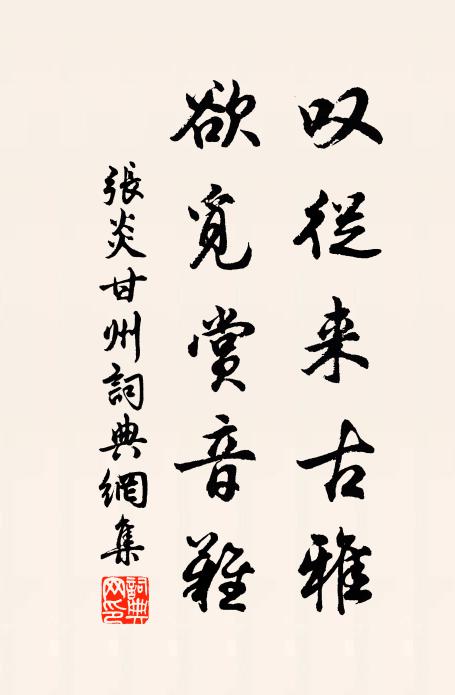 叹從来古雅
欲覓賞音難
張炎甘州詞典網集
詞典网印